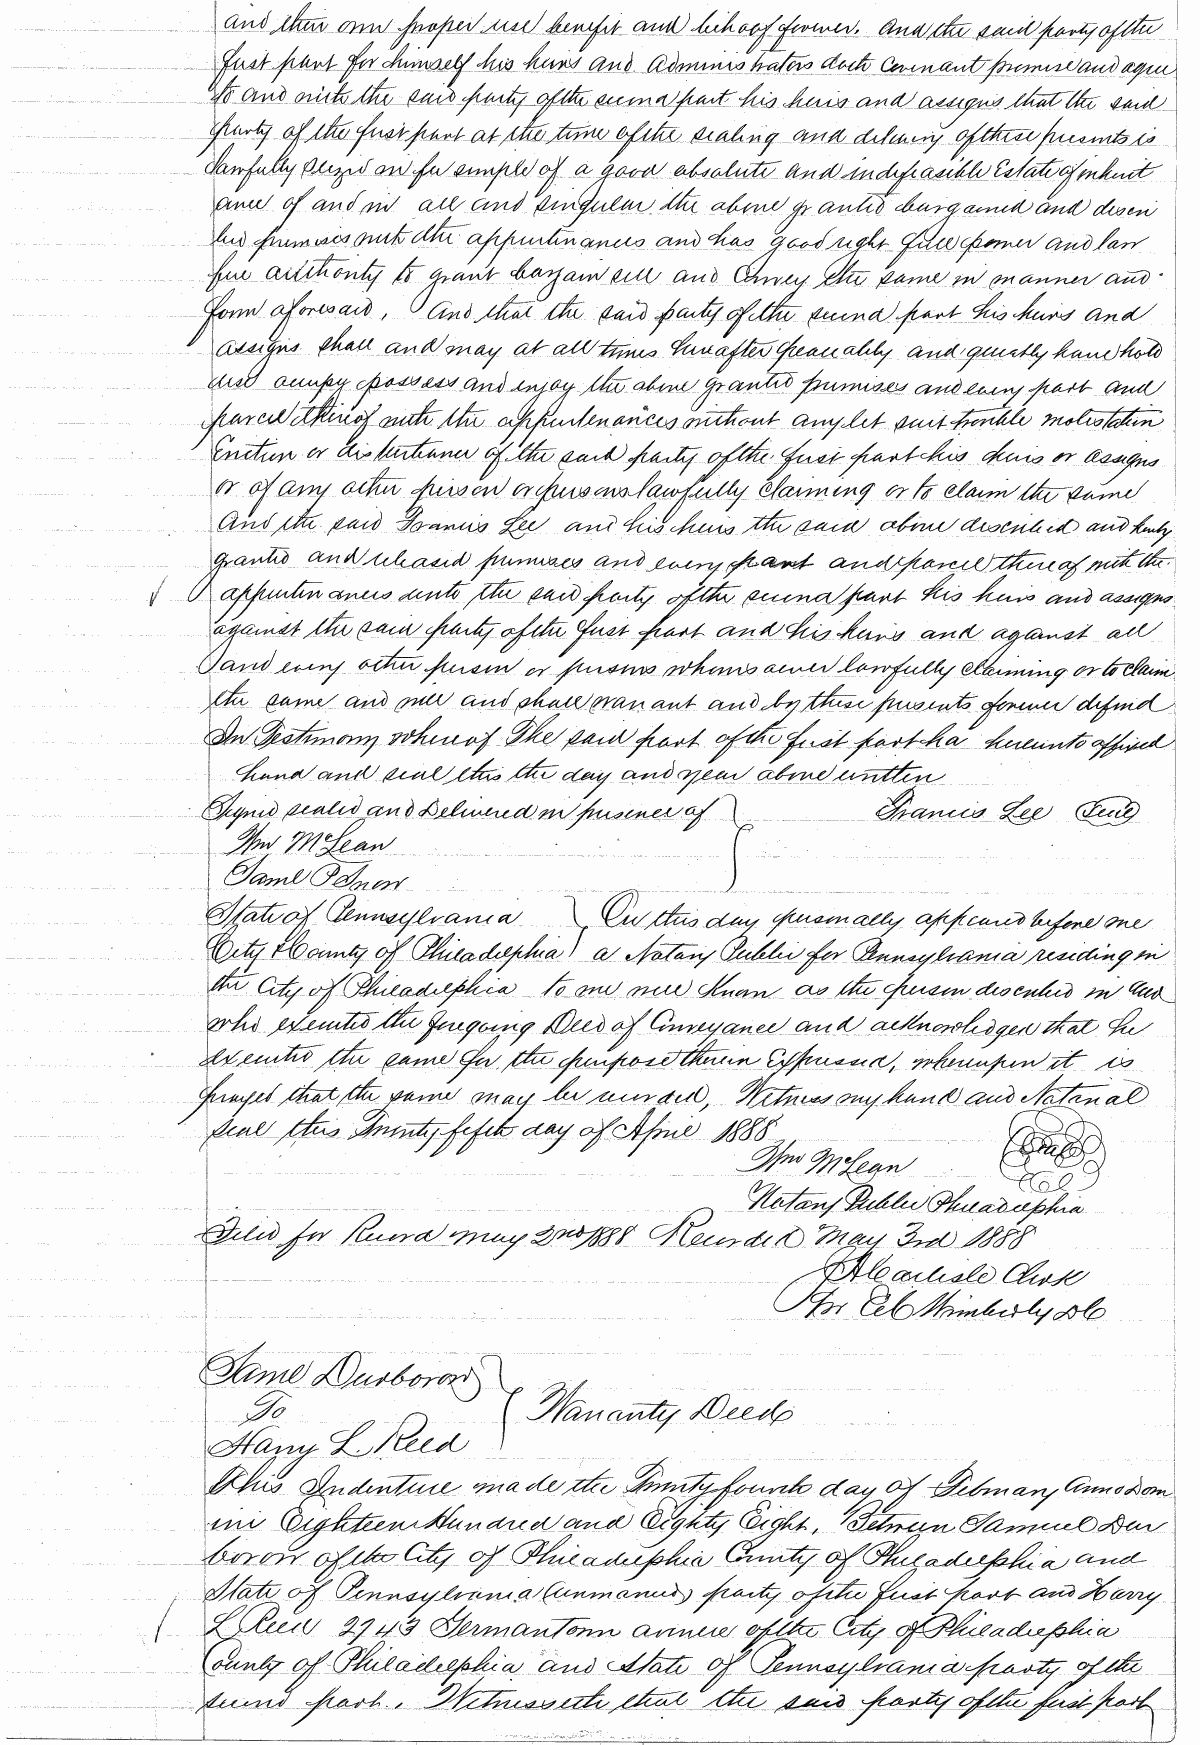 and their own proper use benefit and behoof forever. And the said party of the
first part for himself his heirs and Administrators doth Covenant promise and agree
to and with the said party of the second part his heirs and assigns that the said
party of the first part at the time of the sealing and delivery of these presents is
Lawfully Seized in fee simple of a good absolute and indefeasible Estate of inherit
ance of and in all and singular the above granted bargained and descri
bed premises with the appurtinances and has good right full power and law
full authority to grant bargain sell and Convey the same in manner and
form aforesaid, And that the said party of the second part his heirs and
assigns shall and may at all times hereafter peaceably and quietly have hold
use occupy possess and enjoy the above granted premises and every part and
parcel thereof with the appurtenances without any let suit trouble molestation
Eviction or disturbance of the said party of the first part his heirs or assigns
or of any other person or persons lawfully Claiming or to claim the same
And the said Francis Lee and his heirs the said above described and hereby
granted and released premises and every part and parcel thereof with the
appurtinances unto the said party of the second part his heirs and assigns
against the said party of the first part and his heirs and against all
and every other person or persons whomsoever lawfully Claiming or to Claim
the same and will and shall warrant and by these presents forever defend
In Testimony whereof The said part of the first part ha hereunto affixed
hand and seal this the day and year above written
Signed sealed and Delivered in presence of Francis Lee Seal
Wm McLean
Saml P Snow
State of Pennsylvania On this day personally appeared before me
City & County of Philadelphia a Notary Public for Pennsylvania residing in
the City of Philadelphia to me well Known as the person described in and
who executed the foregoing Deed of Conveyance and acknowledged that he
executed the same for the purpose therein Expressed, whereupon it is
prayed that the same may be recorded, Witness my hand and Notarial
seal this Twenty fifth day of April 1888
Wm McLean
Notary Public Philadelphia
Filed for Record May 2nd 1888 Recorded May 3rd 1888
A Carlisle Clerk
Per Wimberly DC
Saml Durborow
To Warranty Deed
Harry L Reed
This Indenture made the Twenty fourth day of February Anno Dom
ini Eighteen Hundred and Eighty Eight, Between Samuel Dur
borow of the City of Philadelphia County of Philadelphia and
State of Pennsylvania (unmarried) party of the first part and Harry
L Reed 2943 Germantown avenue of the City of Philadelphia
County of Philadelphia and State of Pennsylvania party of the
second part. Witnesseth that the said party of the first part